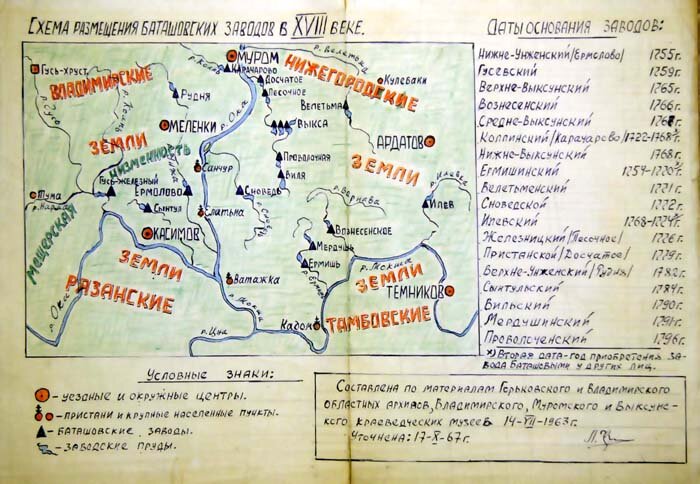 Схема размещения Баташовских заводов в XVIII веке.
Даты основания заводов:
Нижне-Унженский/Ермолово/ 1755г.
Гусевский 1759г.
Верхне-Выксунский 1765г.
Вознесенский 1766г.
Средне-Выксунский
Колпинский/Карачарово/
Нижне-Выксунский 1768г.
Ермишинский
Велетьменский
Сноведской
Илевский
Железницкий/Песочное/
Пристанской/Досчатое/
Верхне-Унженский/Рудня/
Сынтульский
Вильский 1790г.
Мердушинский
Проволоченский 1796г.
*) Вторая дата-год приобретения за-
вода Баташовыми у других лиц.
Гусь-Хруст.
Владимирские
земли
р. Гусь
р. Колпь
Муром
Карачарово
р. Велетьма
Досчатое
Песочное
Нижегородские
земли
Кулебаки
Велетьма
Рудня
р. Ока
Меленки
Выкса
Ардатов
низменность
Мещерская
Унжа
Санчур
Проволочная
Виля
Тума
Гусь-Железный
Ермолово
Сноведь
Илев
Сынтул
Елатьма
Вознесенское
Касимов
Мердушь
Ермишь
земли
Рязанские
р. Ока
Ватажка
р. Мокша
р. Мокша
земли
Темников
р. Цна
Кадом
Тамбовские
Условные знаки:
- уездные и окружные центры.
- пристани и крупные населенные пункты.
- Баташовские заводы.
- заводские пруды.
Составлена по материалам Горьковского и Владимирского
областных архивов, Владимирского, Муромского и Выксунс-
кого краеведческих музеев 14-VII-1963г.
Уточнена: 17-X-67г.